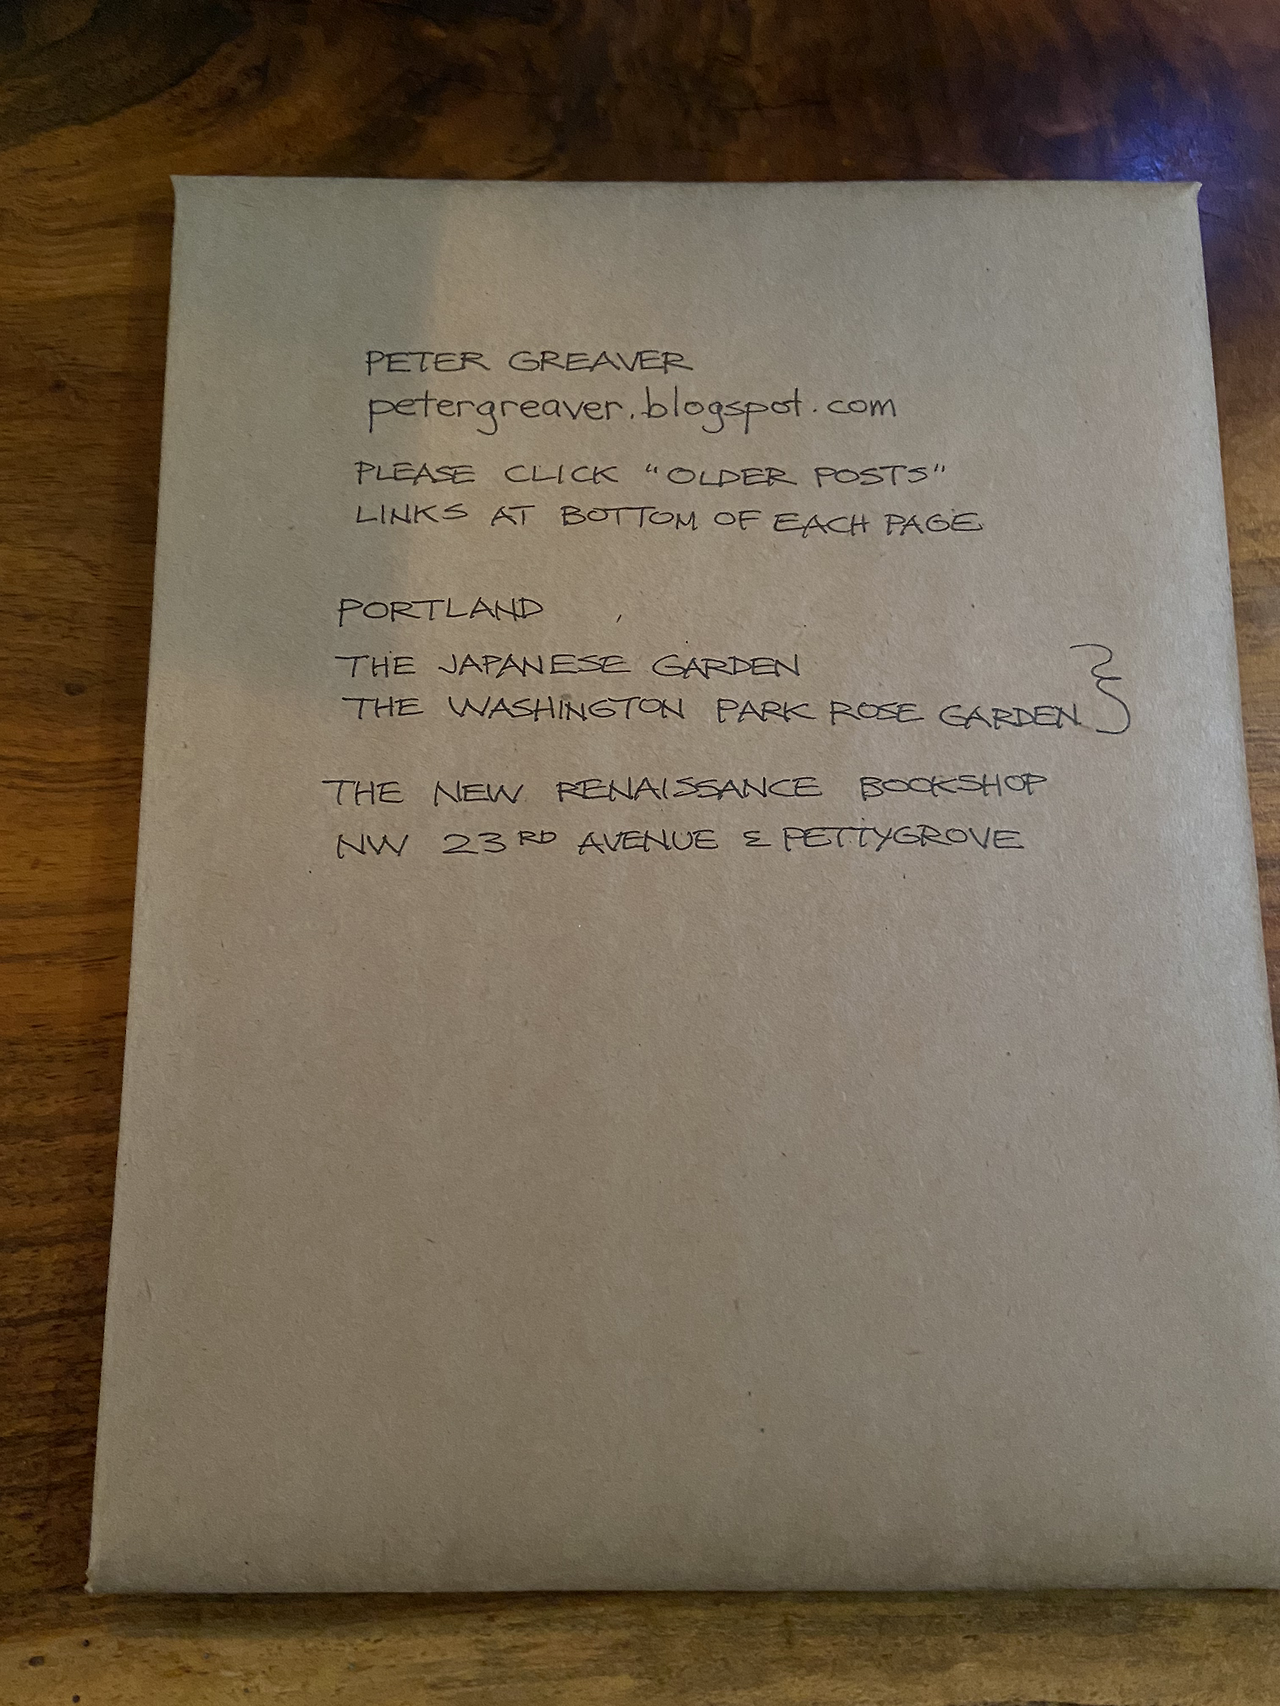 PETER GREAVER
petergreaver.blogspot.com
PLEASE CLICK "OLDER POSTS"
LINKS AT BOTTOM OF EACH PAGE
PORTLAND
THE JAPANESE GARDEN
THE WASHINGTON PARK ROSE GARDEN
THE NEW RENAISSANCE BOOKSHOP
NW 23RD AVENUE & PETTYGROVE